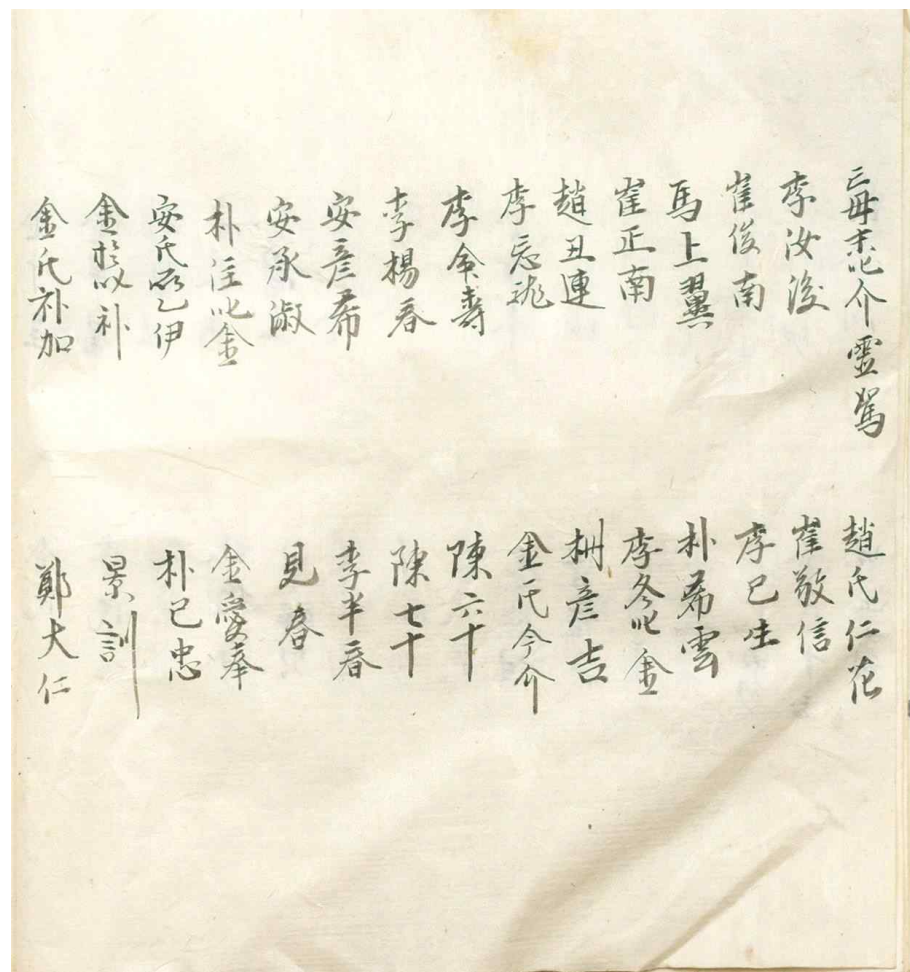 亡母末叱介靈駕
李汝浚
崔俊南
馬上翼
崔正南
趙丑連
李忘
李命壽
李楊春
安彦希
安承淑
朴注叱金
安氏乙伊
金補
金氏補加
趙氏仁花
崔敬信
李已生
朴希雲
李冬叱金
彦吉
金氏今介
陳六十
陳七十
李半春
見春
金愛奉
朴已忠
景訓
鄭大仁